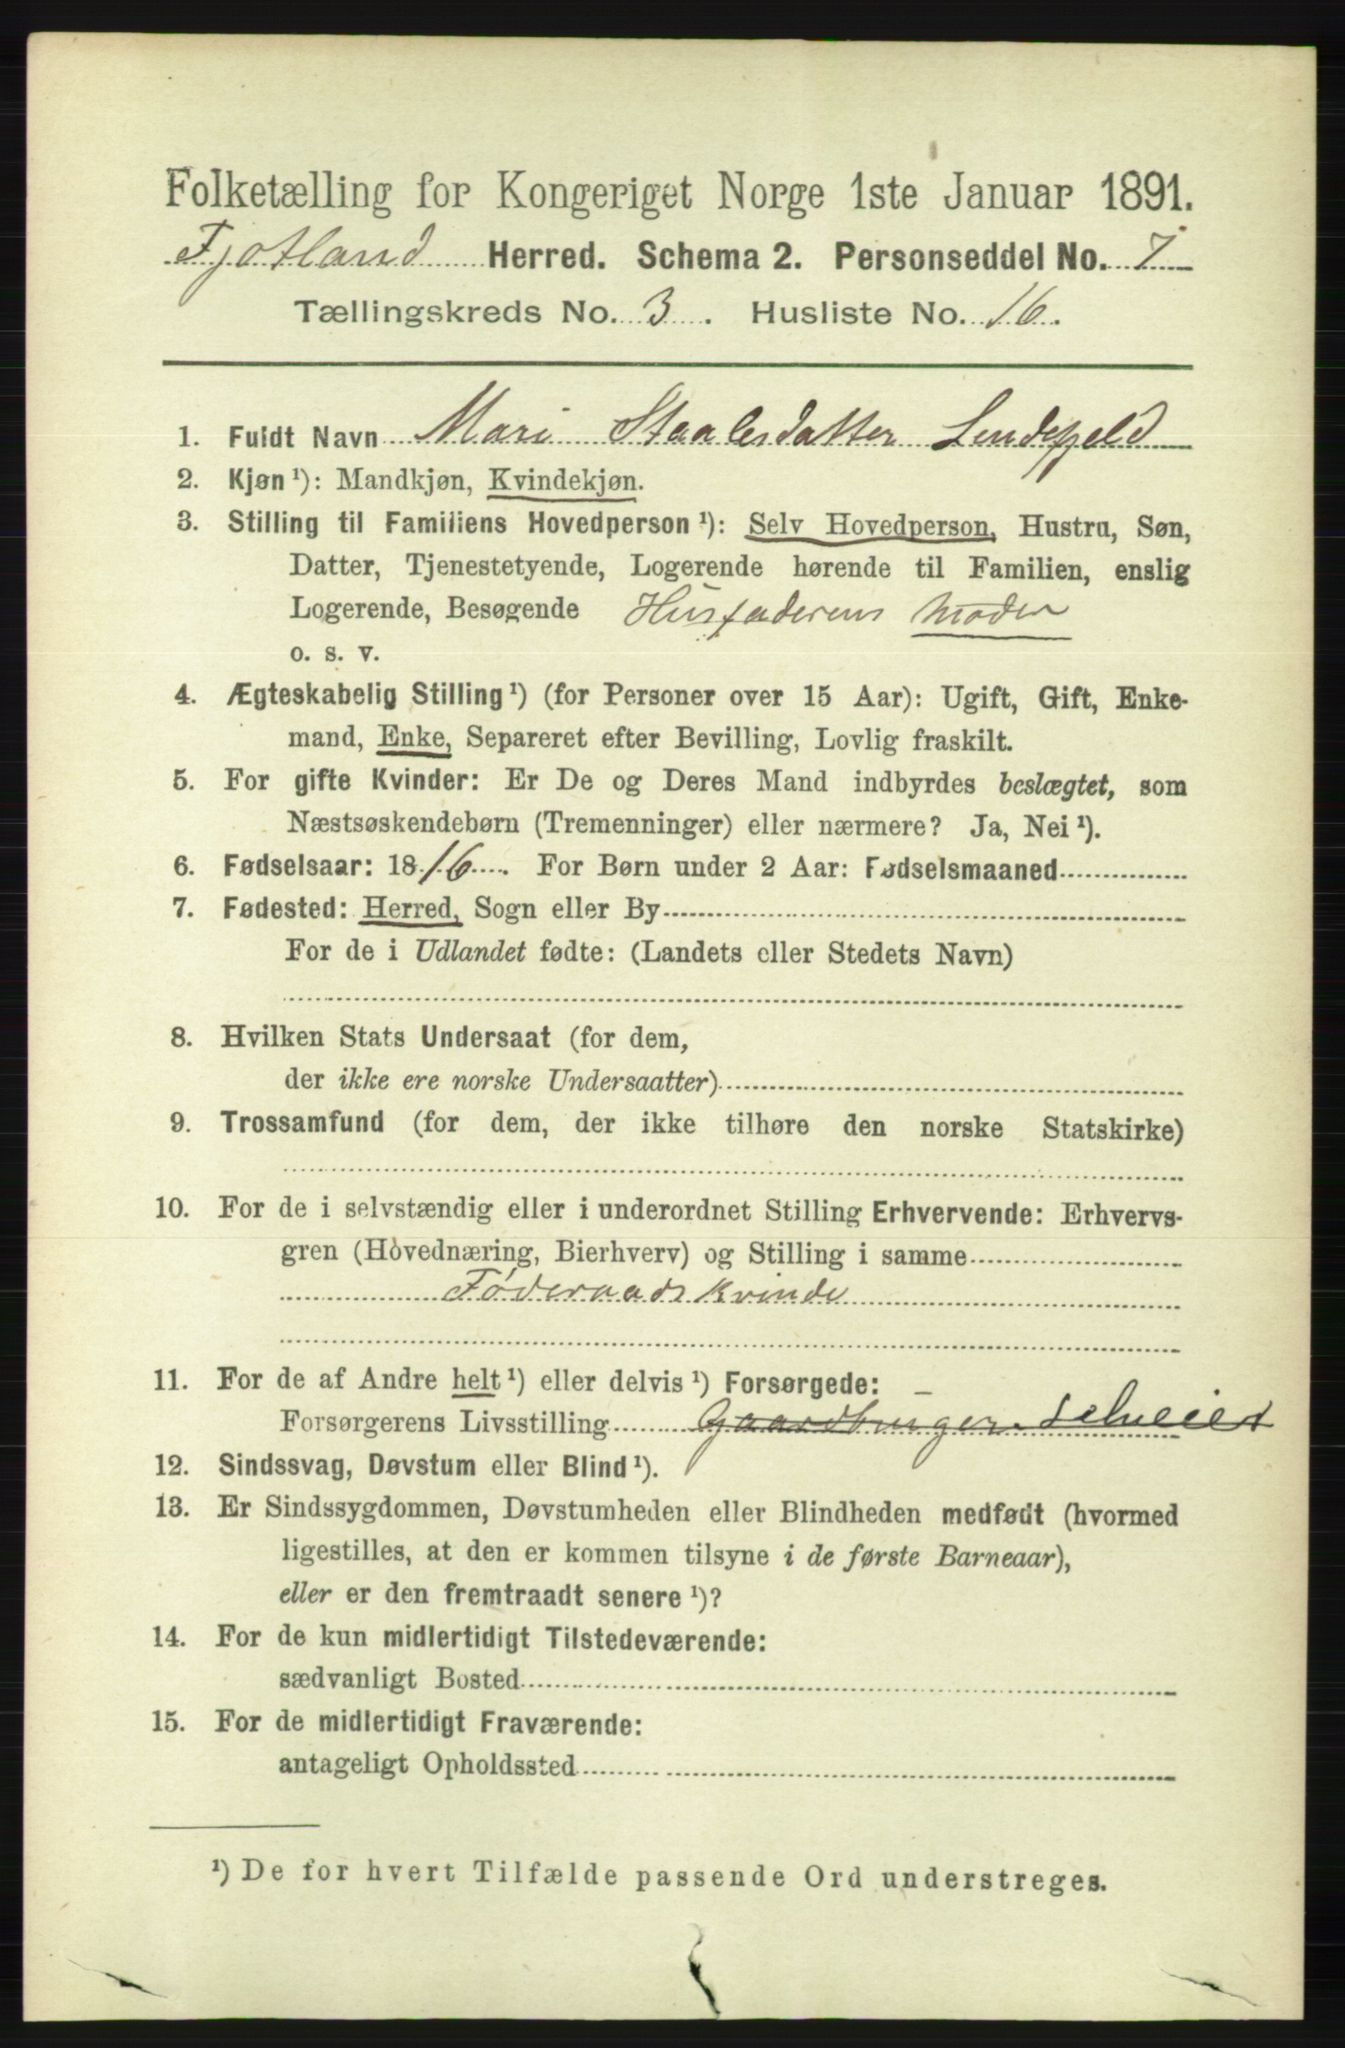 Folketælling for Kongeriget Norge 1ste Januar 1891.
Fjotland Herred. Schema 2. Personseddel No. 7
Tællingskreds No. 3. Husliste No. 16.
1. Fuldt Navn Mari Staalesdatter Lindefjeld
2. Kjøn ¹): Mandkjøn, Kvindekjøn.
3. Stilling til Familiens Hovedperson ¹): Selv Hovedperson, Hustru, Søn,
Datter, Tjenestetyende, Logerende hørende til Familien, enslig
Logerende, Besøgende Husfaderens Moder
o. s. v.
4. Ægteskabelig Stilling ¹) (for Personer over 15 Aar): Ugift, Gift, Enke-
mand, Enke, Separeret efter Bevilling, Lovlig fraskilt.
5. For gifte Kvinder: Er De og Deres Mand indbyrdes beslægtet, som
Næstsøskendebørn (Tremenninger) eller nærmere? Ja, Nei ¹).
6. Fødselsaar: 1816. For Børn under 2 Aar: Fødselsmaaned
7. Fødested: Herred, Sogn eller By
For de i Udlandet fødte: (Landets eller Stedets Navn)
8. Hvilken Stats Undersaat (for dem,
der ikke ere norske Undersaatter)
9. Trossamfund (for dem, der ikke tilhøre den norske Statskirke)
10. For de i selvstændig eller i underordnet Stilling Erhvervende: Erhvervs-
gren (Hovednæring, Bierhverv) og Stilling i samme
Føderaadskvinde
11. For de af Andre helt ¹) eller delvis ¹) Forsørgede: –
Forsørgerens Livsstilling Gaardbruger Selveier
12. Sindssvag, Døvstum eller Blind ¹).
13. Er Sindssygdommen, Døvstumheden eller Blindheden medfødt (hvormed
ligestilles, at den er kommen tilsyne i de første Barneaar),
eller er den fremtraadt senere ¹)?
14. For de kun midlertidigt Tilstedeværende:
sædvanligt Bosted
15. For de midlertidigt Fraværende:
antageligt Opholdssted
¹) De for hvert Tilfælde passende Ord understreges.